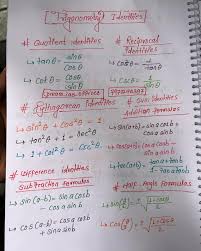 Trigonometry Identities
# Quotient Identities
→ tanθ = sinθ/cosθ
→ cotθ = cosθ/sinθ
# Reciprocal Identities
→ cotθ = 1/tanθ
→ cscθ = 1/sinθ
# Pythagorean Identities
→ sin²θ + cos²θ = 1
→ tan²θ + 1 = sec²θ
→ 1 + cot²θ = csc²θ
# Sum Identities
Addition Formulas
→ sin(a+b) = sina cosb + cosa sinb
→ cos(a+b) = cosa cosb
→ tan(a+b) = tana + tanb / 1 - tana tanb
# Difference Identities
Subtraction Formulas
→ sin(a-b) = sina cosb - cosa sinb
→ cos(a-b) = cosa cosb + sina sinb
# Half Angle Formulas